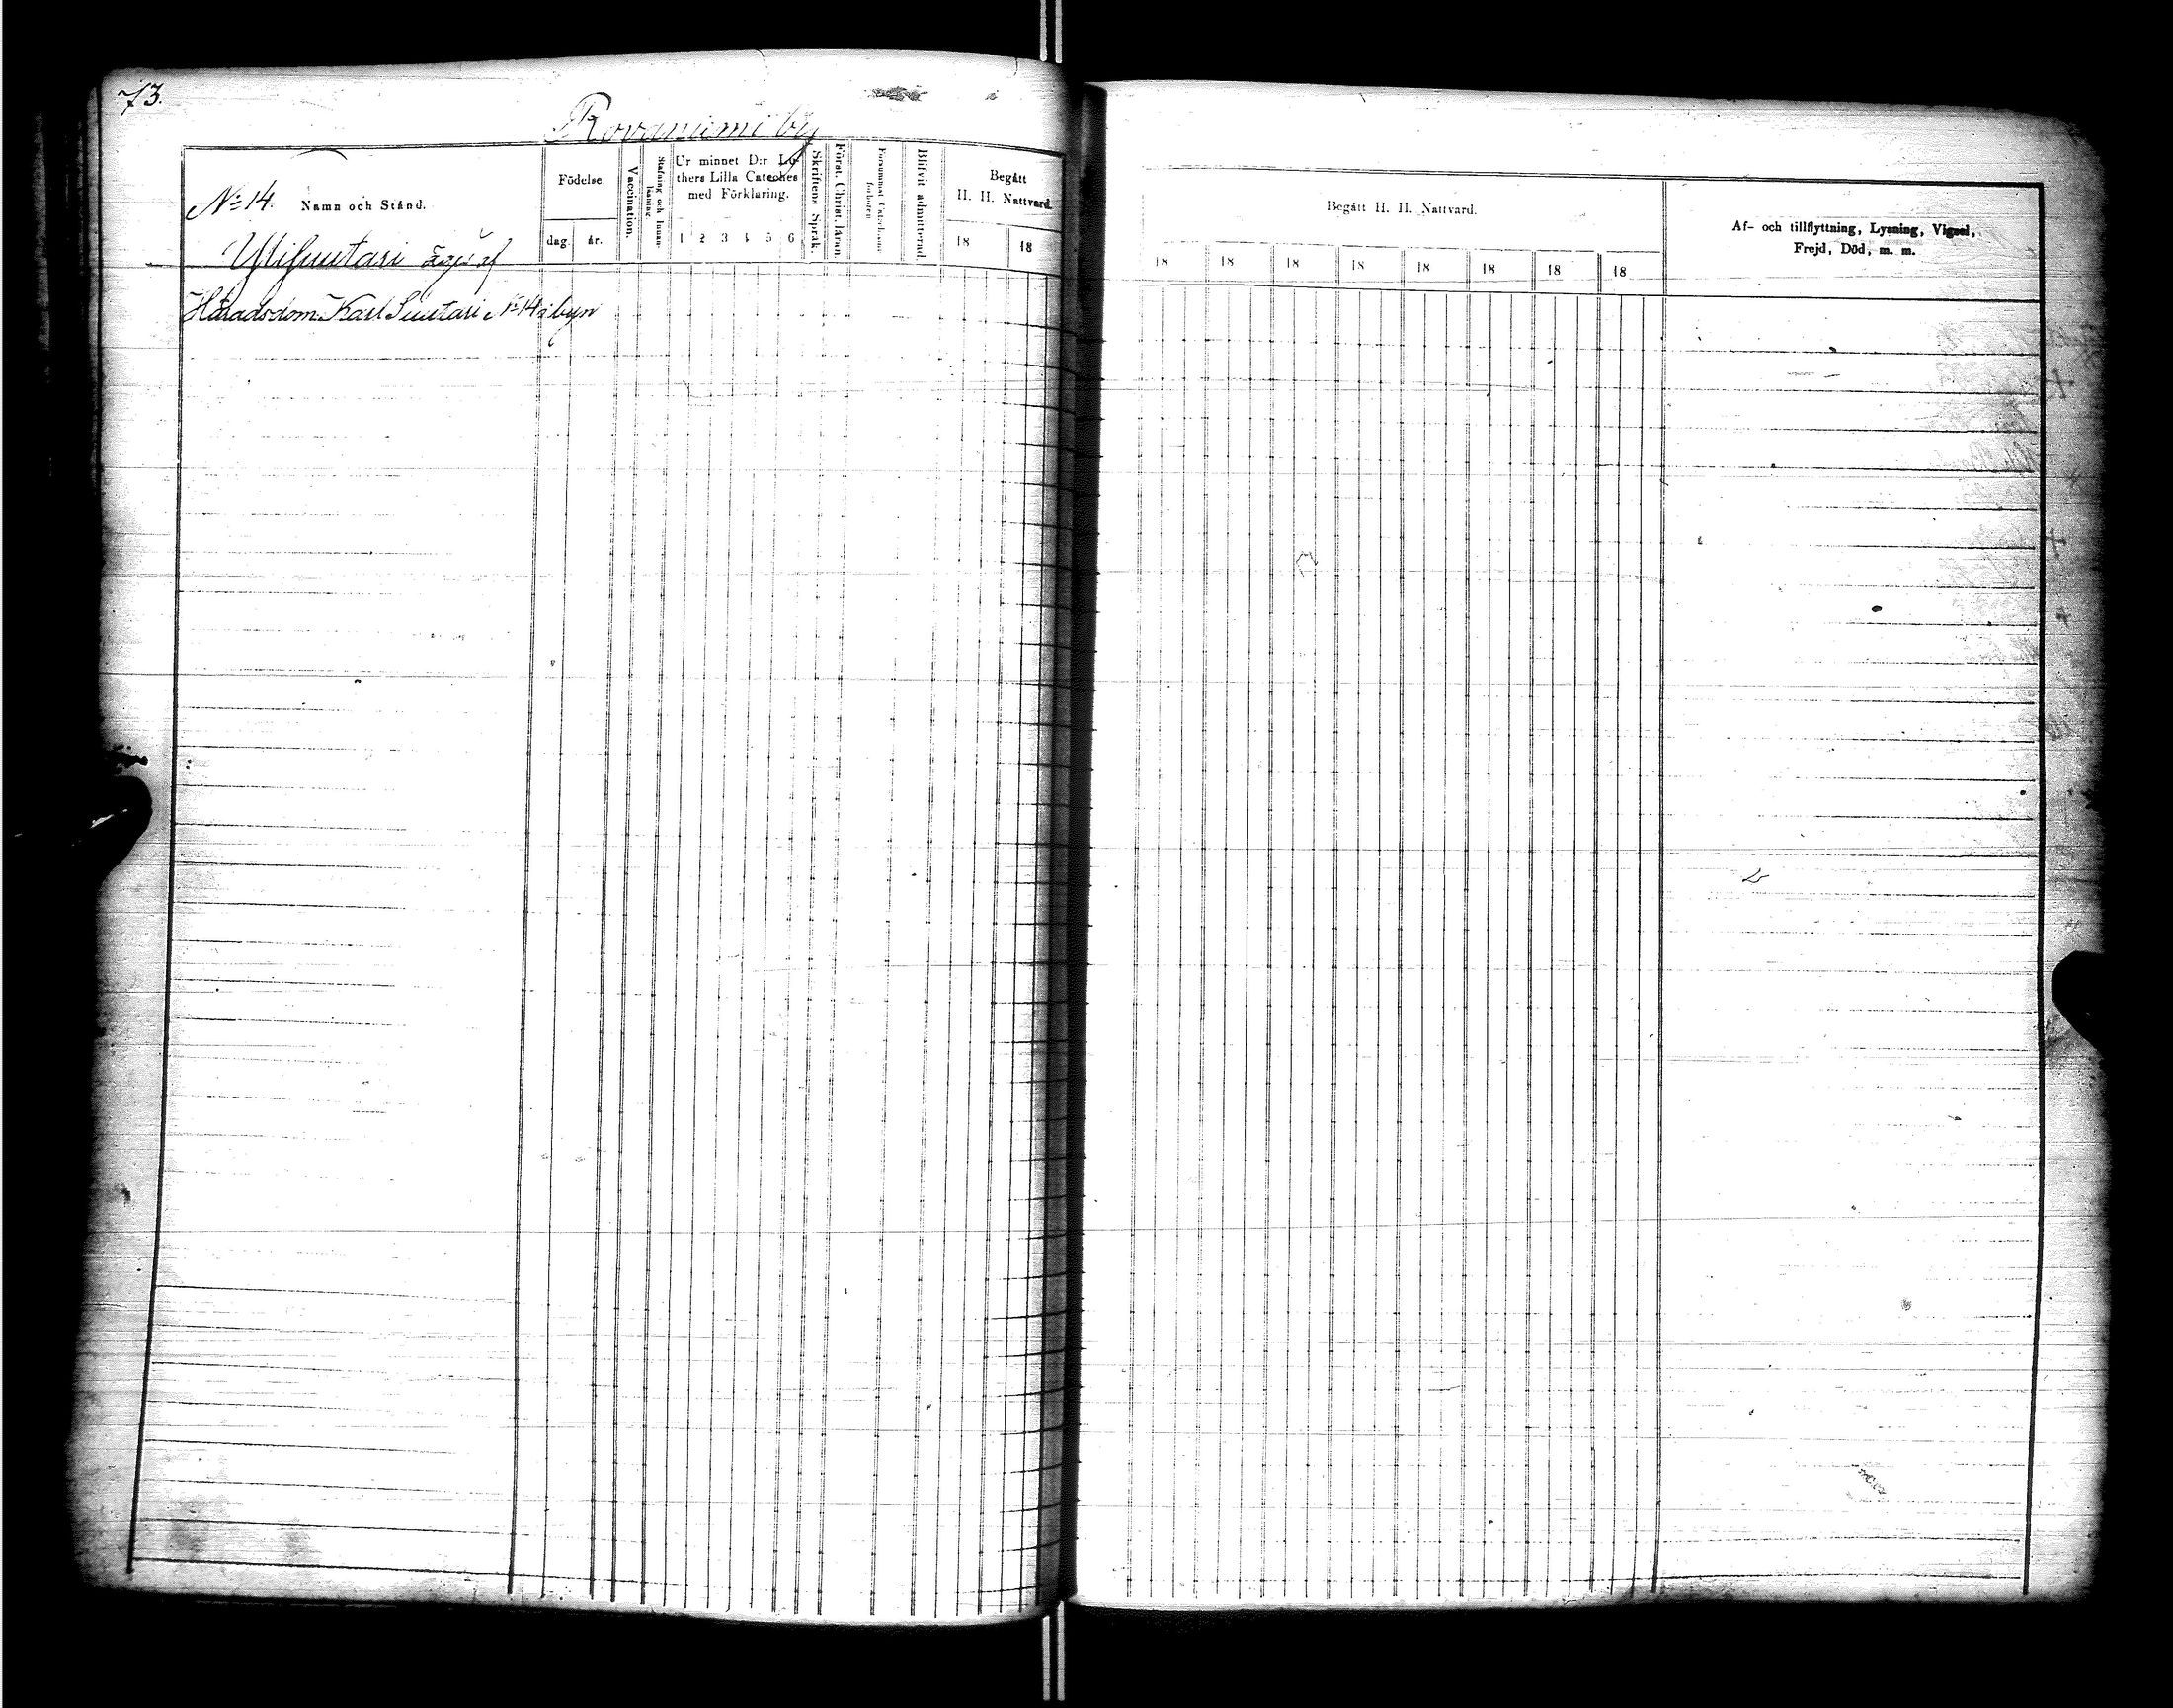 73.
Rovaniemi by
No 14. Namn och Stånd.
Födelse.
dag. år.
Vaccination.
Stafning och Innanläsning.
Ur minnet D:r Luthers Lilla Cateches
med Förklaring.
1 2 3 4 5 6
Skriftens Språk.
Först. Christ. läran.
Blifvit admitterad.
Begått
H. H. Nattvard.
18 18
Ylisuutari äges af
Häradsdom. Karl Suutari No 14 i byn
Begått H. H. Nattvard.
18 18 18 18 18 18 18 18
Af- och tillflyttning, Lysning, Vigsel,
Frejd, Död, m. m.